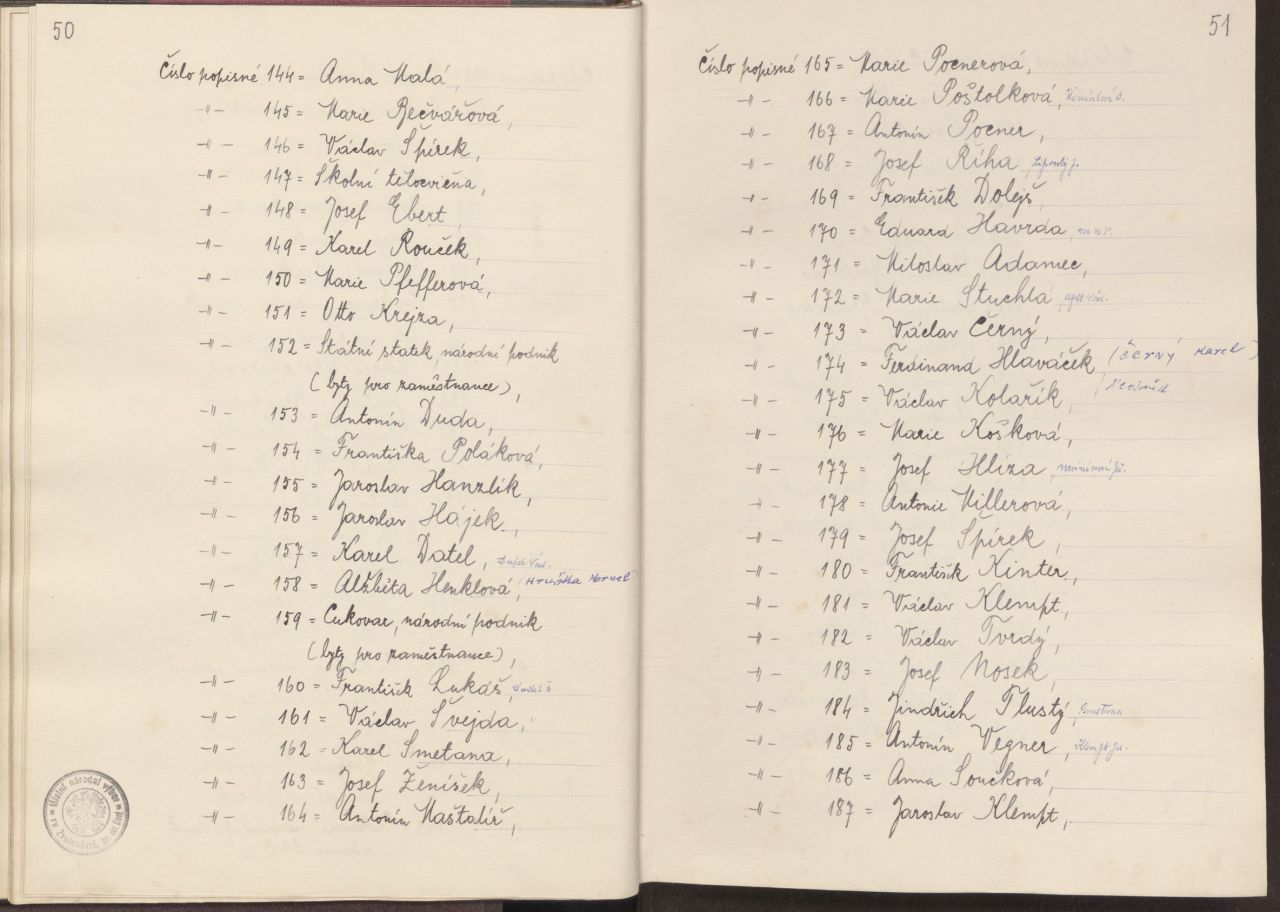 50
Číslo popisné 144 = Anna Malá,
-"- 145 = Marie Bečvářová,
-"- 146 = Václav Špírek,
-"- 147 = Školní tělocvična,
-"- 148 = Josef Ebert,
-"- 149 = Karel Rouček,
-"- 150 = Marie Pfefferová,
-"- 151 = Otto Krejza,
-"- 152 = Státní statek, národní podnik
(byty pro zaměstnance),
-"- 153 = Antonín Duda,
-"- 154 = Františka Poláková,
-"- 155 = Jaroslav Hanzlík,
-"- 156 = Jaroslav Hájek,
-"- 157 = Karel Datel,
-"- 158 = Alžběta Henklová, (Hruška Karel)
-"- 159 = Cukovar, národní podnik
(byty pro zaměstnance),
-"- 160 = František Lukáš,
-"- 161 = Václav Švejda,
-"- 162 = Karel Smetana,
-"- 163 = Josef Ženíšek,
-"- 164 = Antonín Maštalíř,
Místní národní výbor
51
Číslo popisné 165 = Marie Pocnerová,
-"- 166 = Marie Poštolková,
-"- 167 = Antonín Pocner,
-"- 168 = Josef Říha, Lipovský J.
-"- 169 = František Dolejš,
-"- 170 = Eduard Havrda, MNV.
-"- 171 = Miloslav Adamec,
-"- 172 = Marie Stuchlá,
-"- 173 = Václav Černý,
-"- 174 = Ferdinand Hlaváček, (Černý Karel)
-"- 175 = Václav Kolařík,
-"- 176 = Marie Košková,
-"- 177 = Josef Hlíza,
-"- 178 = Antonie Millerová,
-"- 179 = Josef Špírek,
-"- 180 = František Kinter,
-"- 181 = Václav Klempt,
-"- 182 = Václav Tvrdý,
-"- 183 = Josef Nosek,
-"- 184 = Jindřich Tlustý, Smetana
-"- 185 = Antonín Vegner, Klempt Jar.
-"- 186 = Anna Součková,
-"- 187 = Jaroslav Klempt,